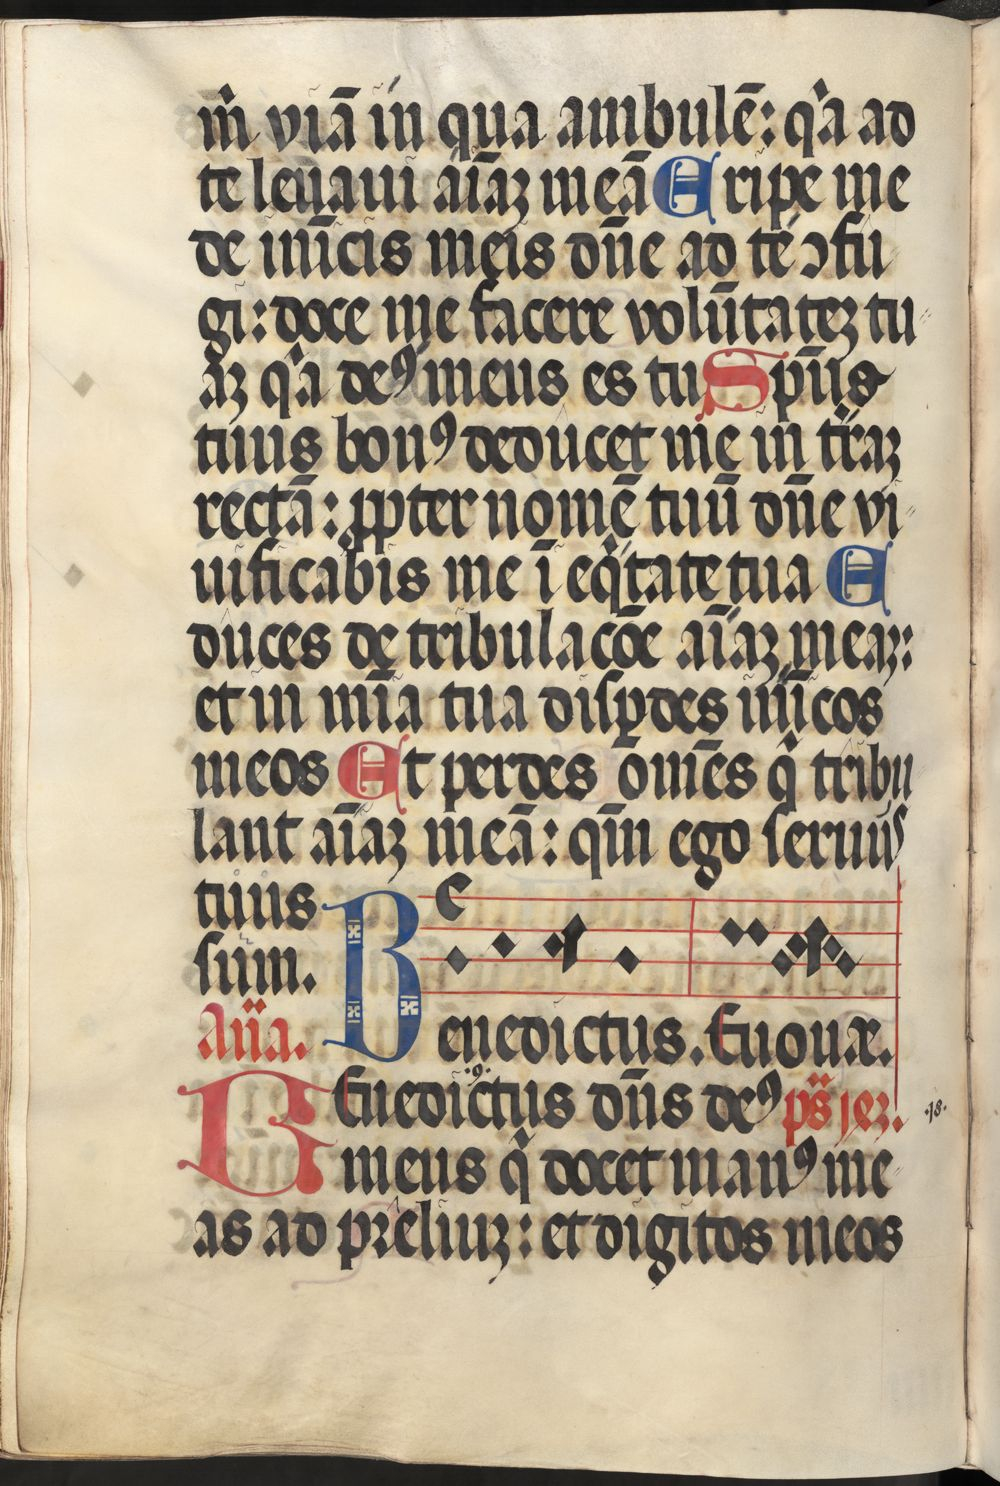 m̃ viā in qua ambulē: q̃a ad
te leuaui aīaʒ meā Eripe me
de inīcis meis dn̄e ad te ꝯfu
gi: doce me facere volūtateʒ tu
aʒ q̃a deꝰ meus es tu Spūs
tuus bonꝰ deducet me in tr̄aʒ
rectā: ꝓpter nomē tuū dn̄e vi
uificabis me ī eq̃tate tua E
duces de tribulacōe aīaʒ meaʒ:
et in mīa tua disꝑdes inīcos
meos Et perdes om̄ēs q̃ tribu
lant aīaʒ meā: qm̄ ego seruus
tuus
sum.
Aña.
Benedictus. Euouæ.
Benedictus dn̄s deꝰ ps̄ jeʒ.
·18·
meus q̃ docet manꝰ me
as ad preliuʒ: et digitos meos